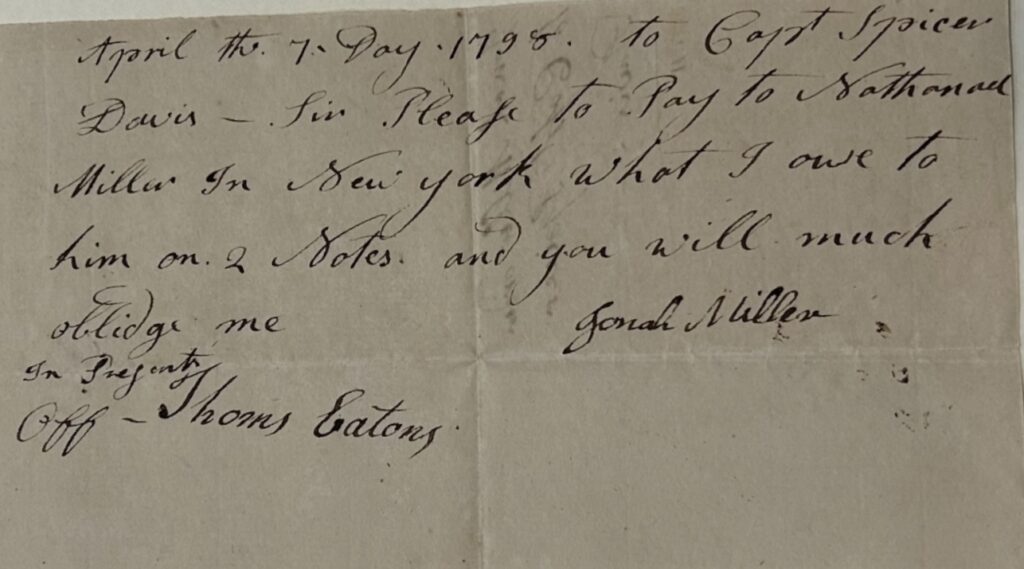 April th. 7. Day. 1798. to Capt Spicer
Davis – Sir Please to Pay to Nathanael
Miller In New york what I owe to
him on. 2 Notes. and you will much
oblidge me Jonah Miller
In Presents
Off – Thoms Eatons